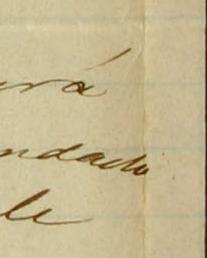 urá
ndado
le